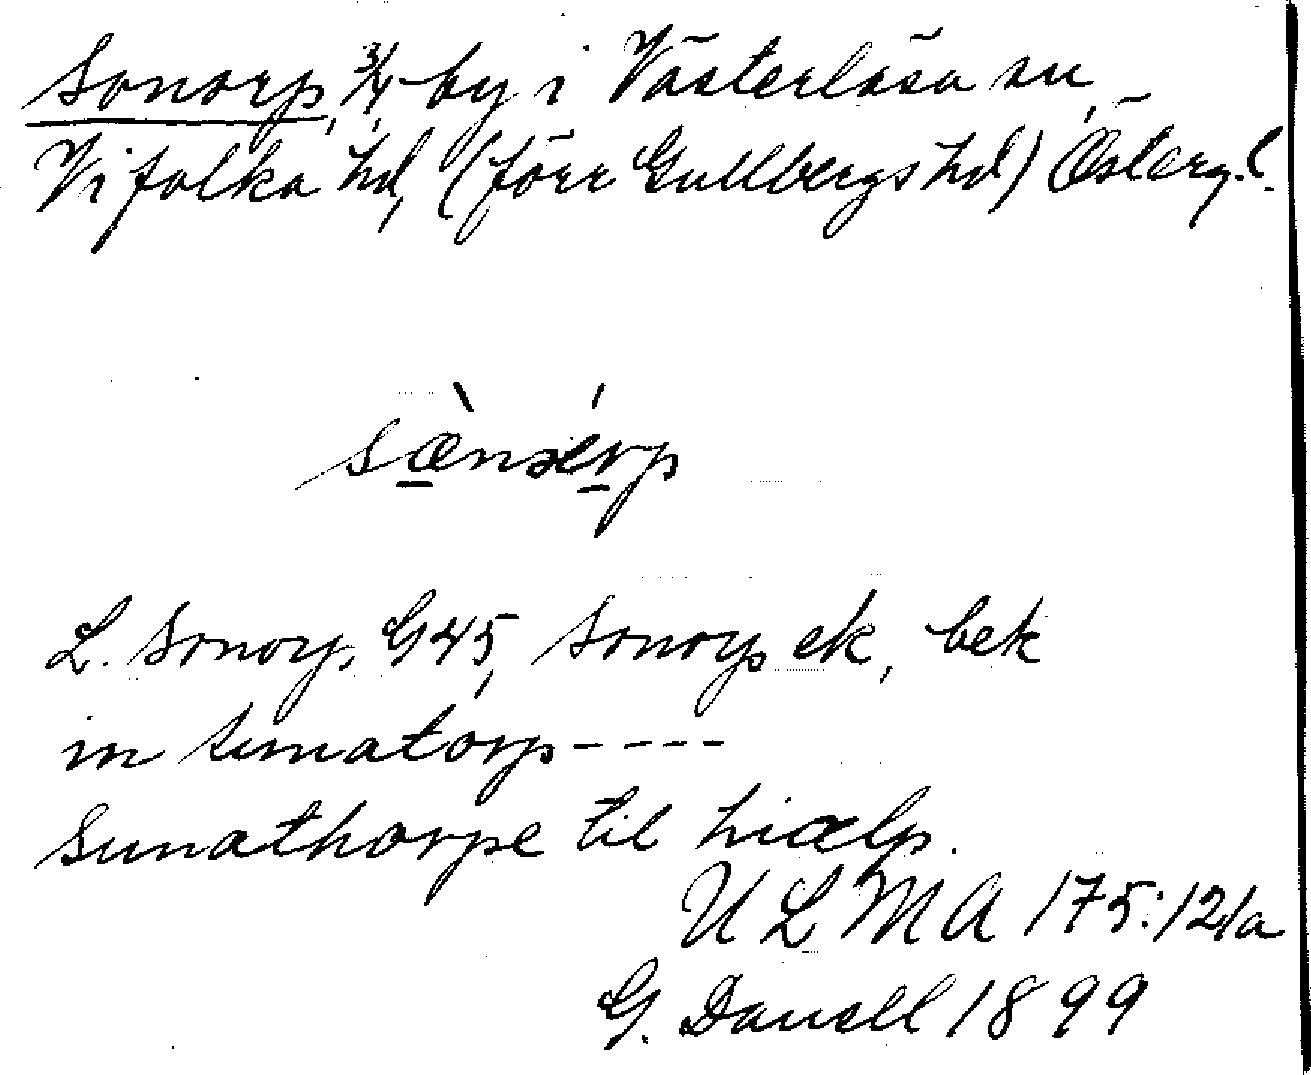 Sonorp, 3/4 by i Västerlösa sn,
Vifolka hd, (förr Gullbergs hd) Österg.l.
L. Sonorp, G45, Sonorp ek, bek
in sunatorp ----
Sunathorpe til hiælp.
ULMA 175:12/a
G. Danell 1899